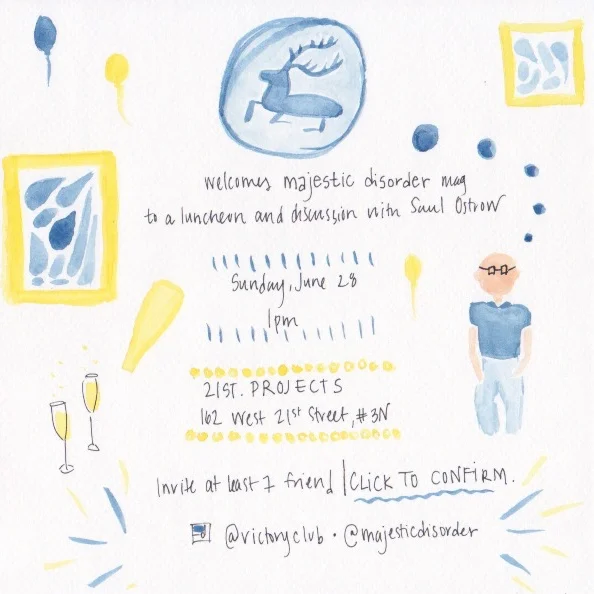 welcomes majestic disorder mag
to a luncheon and discussion with Saul Ostrow
Sunday, June 28
1pm
21ST. PROJECTS
162 West 21st Street, #3N
Invite at least 1 friend | CLICK TO CONFIRM.
@victoryclub · @majesticdisorder